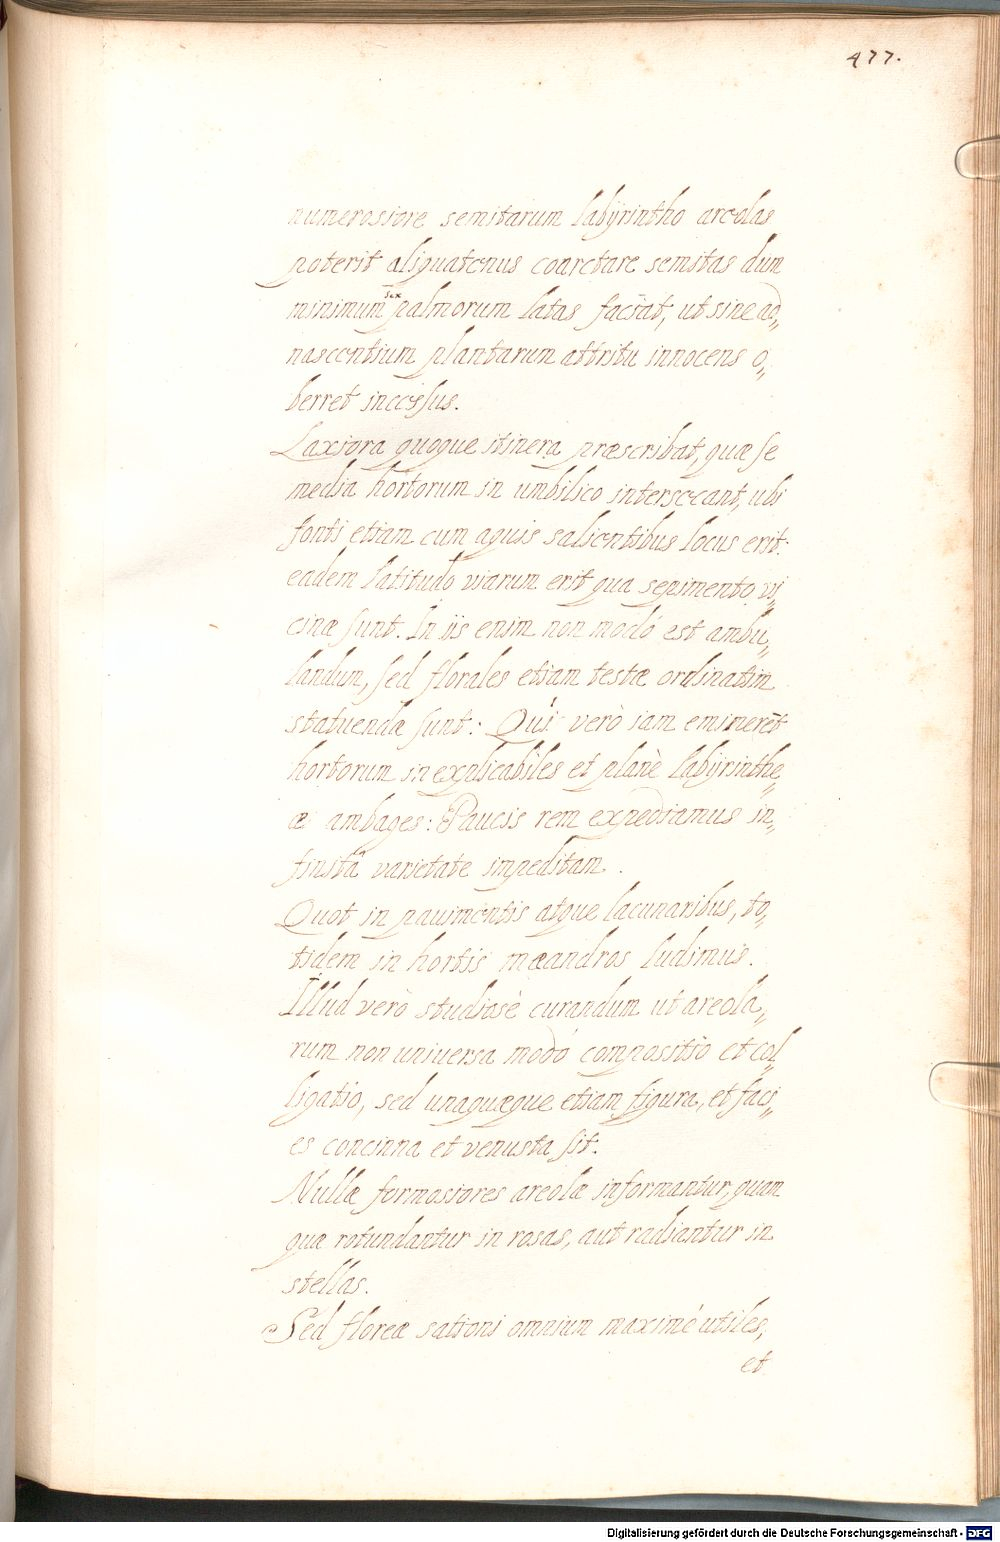 477.
numerosiore semitarum labÿrintho areolas
poterit aliquatenus coarctare semitas dum
minimum sex palmorum latas faciat, ut sine ad„
nascentium plantarum attritu innocens o„
berret incessus.
Laxiora quoque itinera præscribat, quæ se
media hortorum in umbilico intersecant, ubi
fonti etiam cum aquis salientibus locus erit:
eadem latitudo viarum erit qua sepimento vi„
cinæ sunt. In iis enim non modò est ambu„
landum, sed florales etiam testæ ordinatim
statuendæ sunt: Qui verò iam emineret
hortorum inexplicabiles et planè labÿrinthe„
æ ambages: Paucis rem expediamus in„
finitâ varietate impeditam.
Quot in pauimentis atque lacunaribus, to„
tidem in hortis mæandros ludimus.
Illud verò studiosè curandum ut areola„
rum non uniuersa modò compositio et col„
ligatio, sed unaquæque etiam figura, et faci„
es concinna et venusta sit.
Nullæ formosiores areolæ informantur, quam
quæ rotundantur in rosas, aut radiantur in
stellas.
Sed floreæ sationi omnium maximè utiles,
et
Digitalisierung gefördert durch die Deutsche Forschungsgemeinschaft - DFG